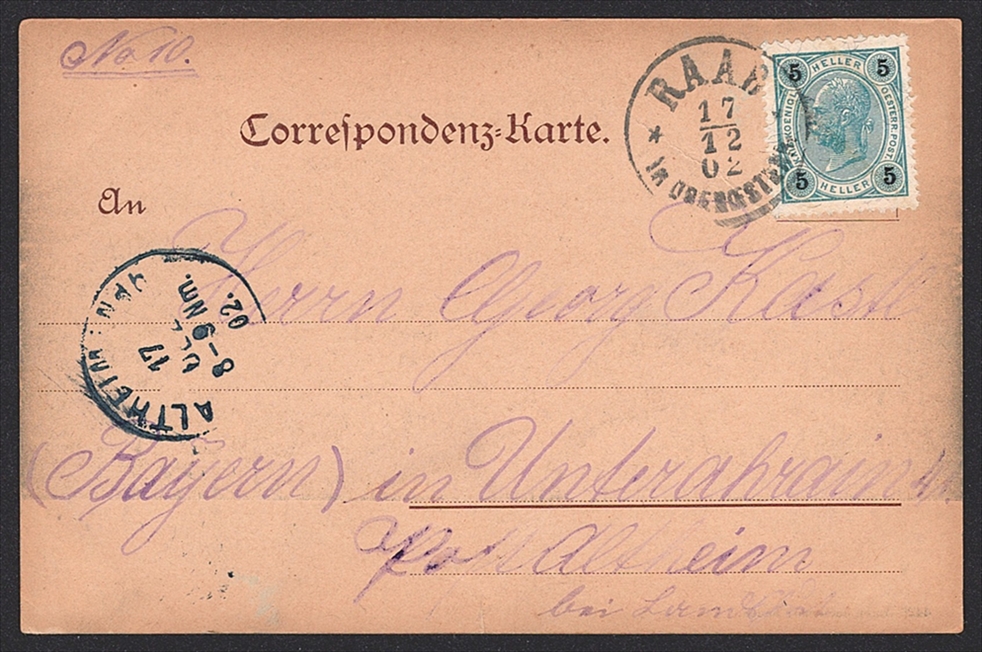 No 10.
Correspondenz-Karte.
RAAB
17
12
02
IN OBEROESTERR
5 HELLER 5
KAIS. KOENIGL.
OESTERR. POST.
5 HELLER 5
An
Herrn Georg Kastl
ALTHEIM
17
8-9 Nm.
02.
(Bayern) in Unterahrain
Post Altheim
bei Landshut